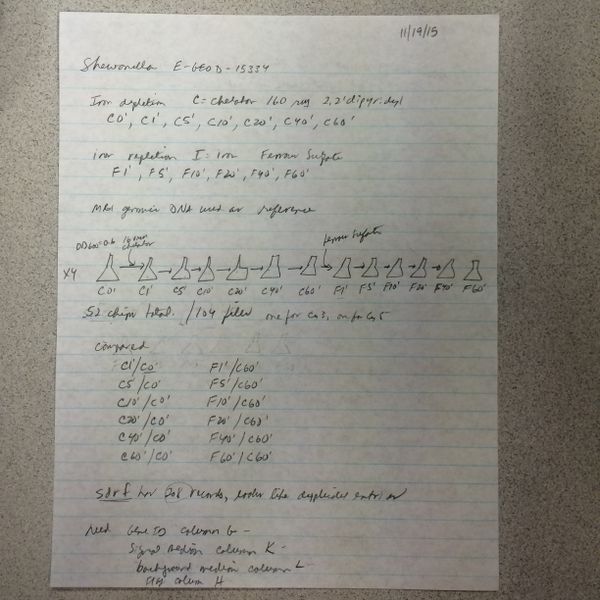 11/19/15
Shewanella E-GEOD-15334
Iron depletion C = chelator 160 2,2'dipyridyl
C0', C1', C5', C10', C20', C40', C60'
iron repletion I = iron Ferrous Sulfate
F1', F5', F10', F20', F40', F60'
MR1 genomic DNA used as reference
OD600=0.6 chelator ferrous sulfate
X4
C0' C1' C5' C10' C20' C40' C60' F1' F5' F10' F20' F40' F60'
52 chips total. /104 files one for Cy3, one for Cy5
compared
C1'/C0' F1'/C60'
C5'/C0' F5'/C60'
C10'/C0' F10'/C60'
C20'/C0' F20'/C60'
C40'/C0' F40'/C60'
C60'/C0' F60'/C60'
sdrf has 208 records, looks like duplicate entries
Need Gene ID column G -
Signal median column K -
background median column L -
Flag column H